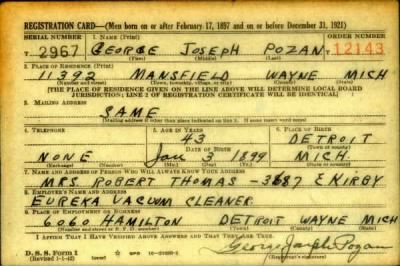 REGISTRATION CARD—(Men born on or after February 17, 1897 and on or before December 31, 1921)
SERIAL NUMBER 1. NAME (Print) ORDER NUMBER
T 2967 GEORGE JOSEPH POZAN T 12143
(First) (Middle) (Last)
2. PLACE OF RESIDENCE (Print)
11392 MANSFIELD WAYNE MICH
(Number and street) (Town, township, village, or city) (County) (State)
[THE PLACE OF RESIDENCE GIVEN ON THE LINE ABOVE WILL DETERMINE LOCAL BOARD
JURISDICTION; LINE 2 OF REGISTRATION CERTIFICATE WILL BE IDENTICAL]
3. MAILING ADDRESS
SAME
[Mailing address if other than place indicated on line 2. If same insert word same]
4. TELEPHONE 5. AGE IN YEARS 6. PLACE OF BIRTH
43 DETROIT
DATE OF BIRTH (Town or county)
NONE Jan 3 1899 MICH.
(Exchange) (Number) (Mo.) (Day) (Yr.) (State or country)
7. NAME AND ADDRESS OF PERSON WHO WILL ALWAYS KNOW YOUR ADDRESS
MRS ROBERT THOMAS - 3687 E KIRBY
8. EMPLOYER'S NAME AND ADDRESS
EUREKA VACUUM CLEANER
9. PLACE OF EMPLOYMENT OR BUSINESS
6060 HAMILTON DETROIT WAYNE MICH
(Number and street or R. F. D. number) (Town) (County) (State)
I AFFIRM THAT I HAVE VERIFIED ABOVE ANSWERS AND THAT THEY ARE TRUE.
D. S. S. Form 1 George Joseph Pozan
(Revised 1-1-42) (Registrant's signature)